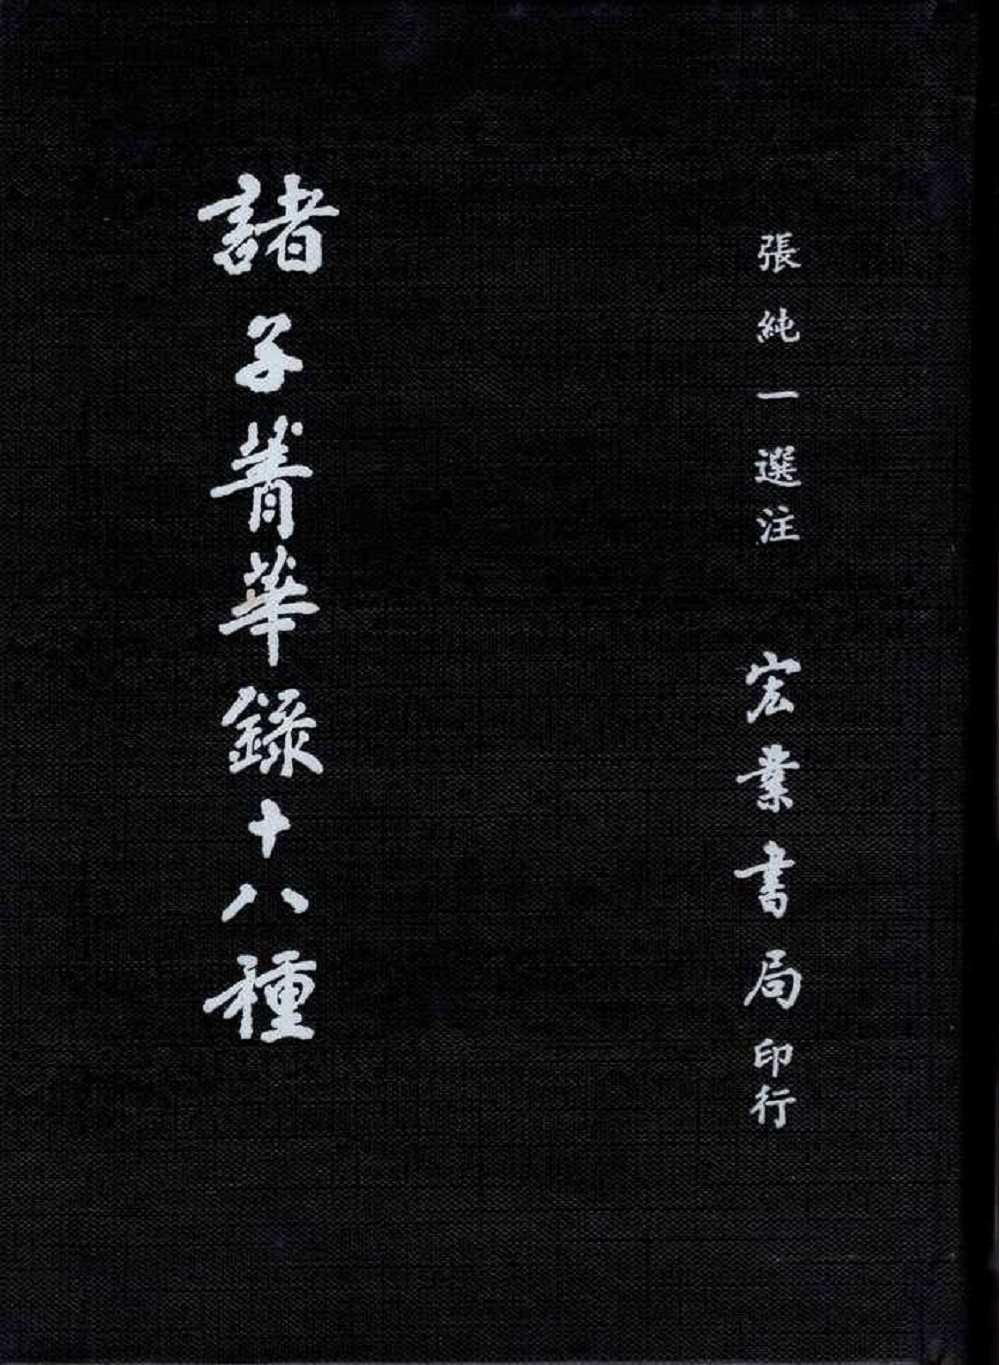 張純一選注 宏業書局印行
諸子菁華錄十八種